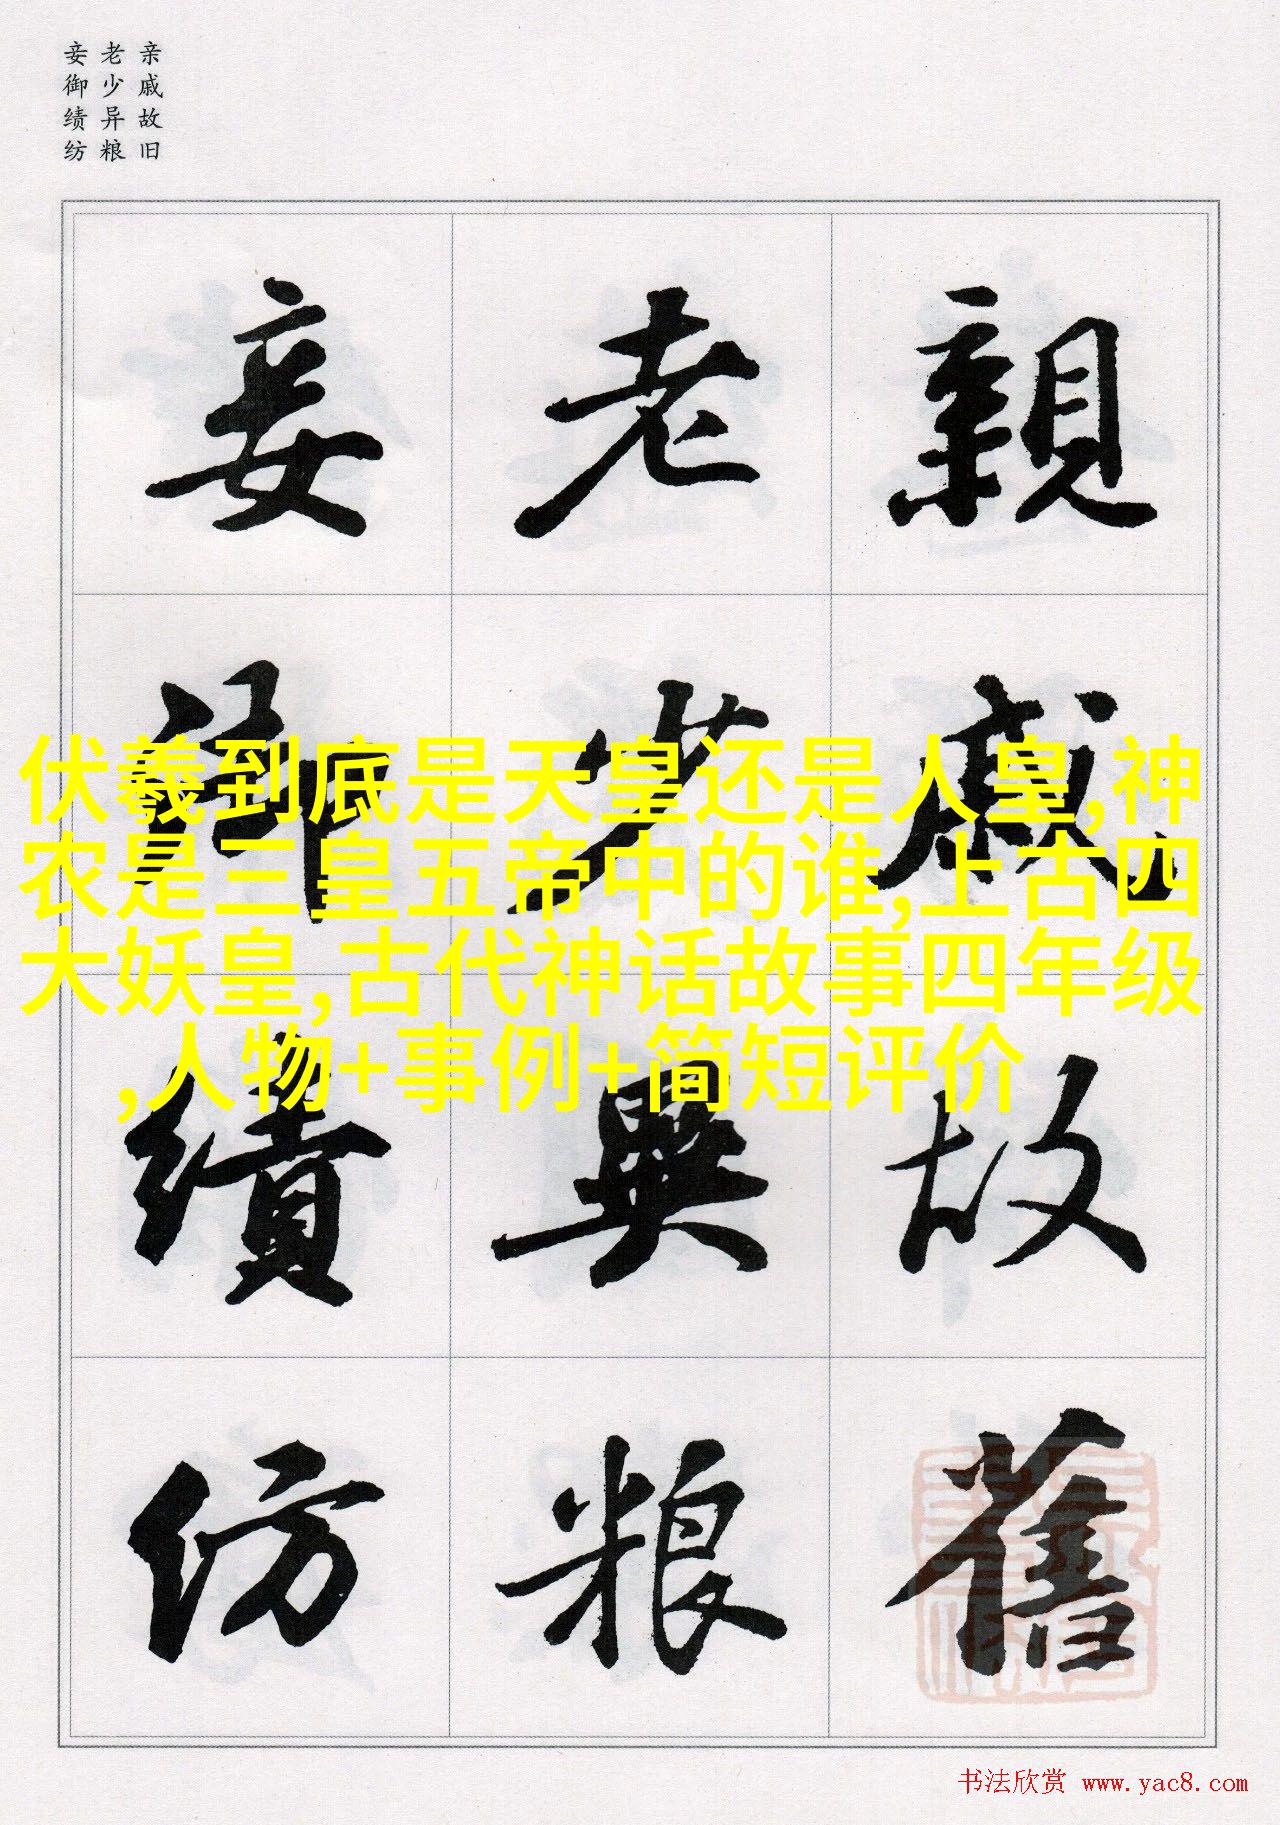 亲戚故旧
老少异粮
妾御绩纺
親戚故舊
老少異粮
妾御績紡
伏羲到底是天皇还是人皇,神
农是三皇五帝中的谁,上古四
大妖皇,古代神话故事四年级
,人物+事例+简短评价
书法欣赏 www.yac8.com